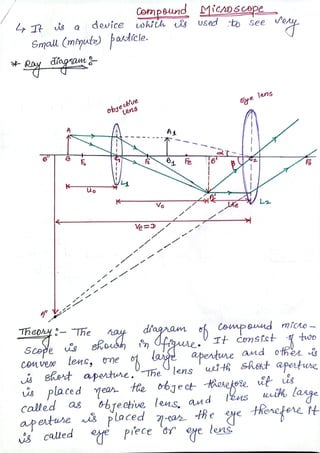 Compound Microscope
↳ It is a device which is used to see very
Small (minute) particle.
* Ray diagram :-
objective lens
eye lens
A
A1
α
β
B"
B
Fo
C1
Fo
B1
FE
B'
C2
FE
L1
A'
L2
uo
vo
ue
ve = D
A"
Theory :- The ray diagram of compound micro-
scope is shown in figure. It consist of two
convex lens, one of large aperture and other is
is short aperture. The lens with short aperture
is placed near the object therefore it is
called as objective lens. and lens with large
aperture is placed near the eye therefore it
is called eye piece or eye lens